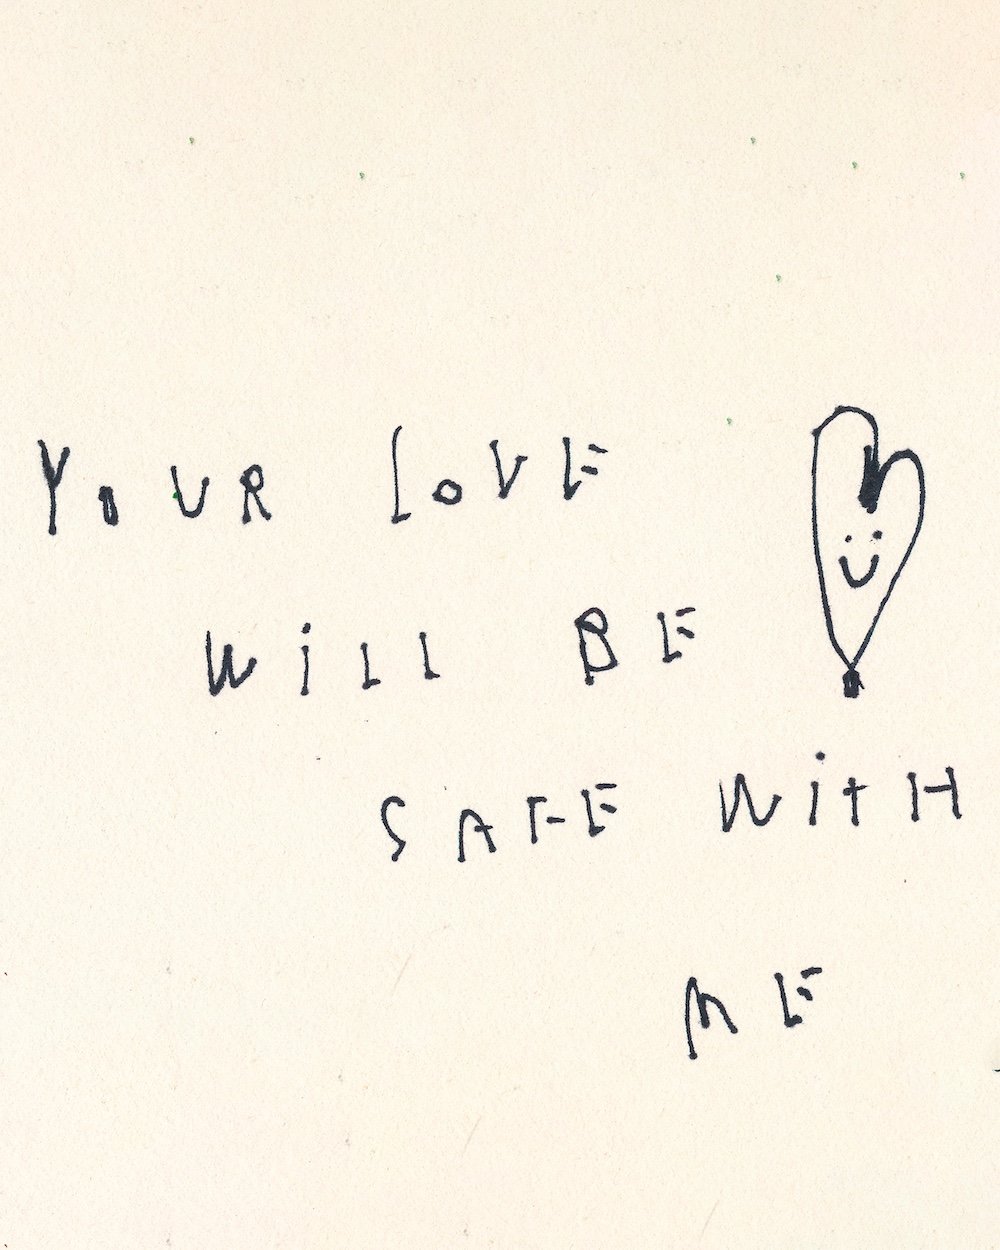 YOUR LOVE
WiLL BE
SAFE WiTH
ME